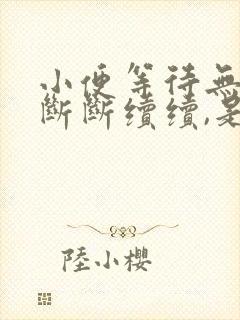 小便等待無
斷斷續續,是
陸小櫻